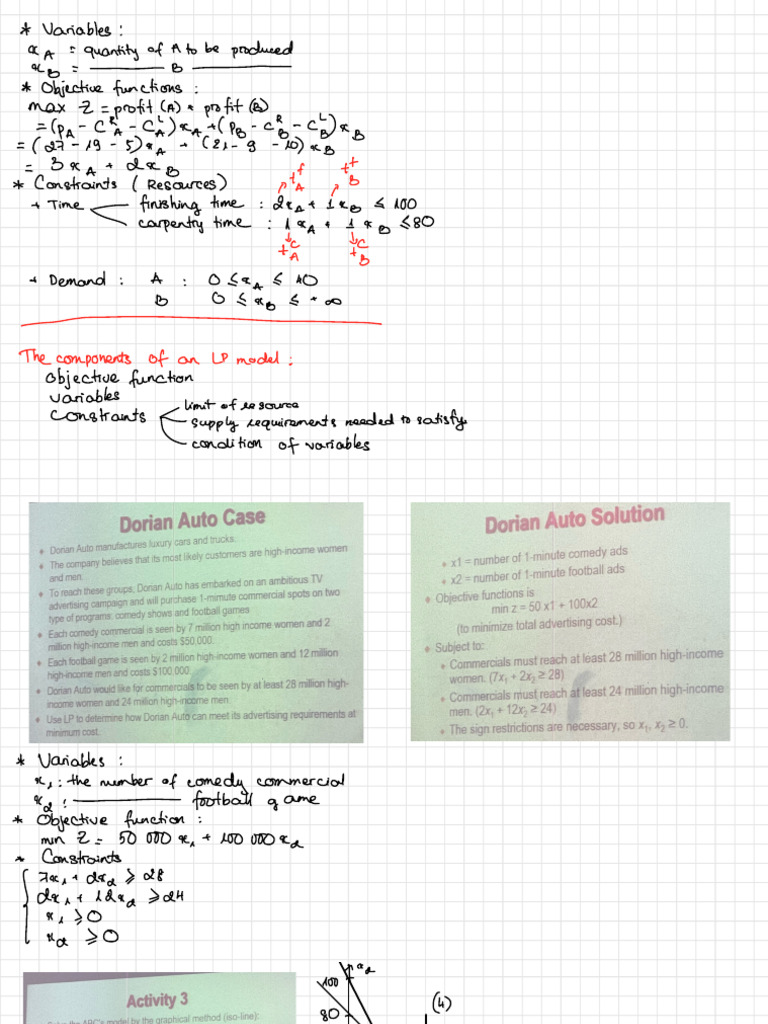 * Variables :
x_A = quantity of A to be produced
x_B = ———— B ————
* Objective functions :
max Z = profit (A) + profit (B)
= (p_A - C_A^R - C_A^L) x_A + (p_B - C_B^R - C_B^L) x_B
= (27 - 19 - 5) x_A + (21 - 9 - 10) x_B
= 3 x_A + 2 x_B
* Constraints (Resources)
t_A^f t_B^f
+ Time finishing time : 2x_A + 1 x_B ≤ 100
carpentry time : 1 x_A + 1 x_B ≤ 80
t_A^c t_B^c
+ Demand : A : 0 ≤ x_A ≤ 40
B 0 ≤ x_B ≤ + ∞
The components of an LP model :
objective function
variables
constraints
limit of resource
supply requirements needed to satisfy
condition of variables
Dorian Auto Case
Dorian Auto manufactures luxury cars and trucks.
The company believes that its most likely customers are high-income women
and men.
To reach these groups, Dorian Auto has embarked on an ambitious TV
advertising campaign and will purchase 1-mimute commercial spots on two
type of programs: comedy shows and football games
Each comedy commercial is seen by 7 million high income women and 2
million high-income men and costs $50,000.
Each football game is seen by 2 million high-income women and 12 million
high-income men and costs $100,000
Dorian Auto would like for commercials to be seen by at least 28 million high-
income women and 24 million high-income men.
Use LP to determine how Dorian Auto can meet its advertising requirements at
minimum cost.
Dorian Auto Solution
x1 = number of 1-minute comedy ads
x2 = number of 1-minute football ads
Objective functions is
min z = 50 x1 + 100x2
(to minimize total advertising cost.)
Subject to:
Commercials must reach at least 28 million high-income
women. (7x₁ + 2x₂ ≥ 28)
Commercials must reach at least 24 million high-income
men. (2x₁ + 12x₂ ≥ 24)
The sign restrictions are necessary, so x₁, x₂ ≥ 0.
* Variables :
x₁ : the number of comedy commercial
x₂ : ———— football game
* Objective function :
min Z = 50 000 x₁ + 100 000 x₂
* Constraints
7x₁ + 2x₂ ≥ 28
2x₁ + 12x₂ ≥ 24
x₁ ≥ 0
x₂ ≥ 0
Activity 3
ABC's model by the graphical method (iso-line):
x₂
100
80
(4)